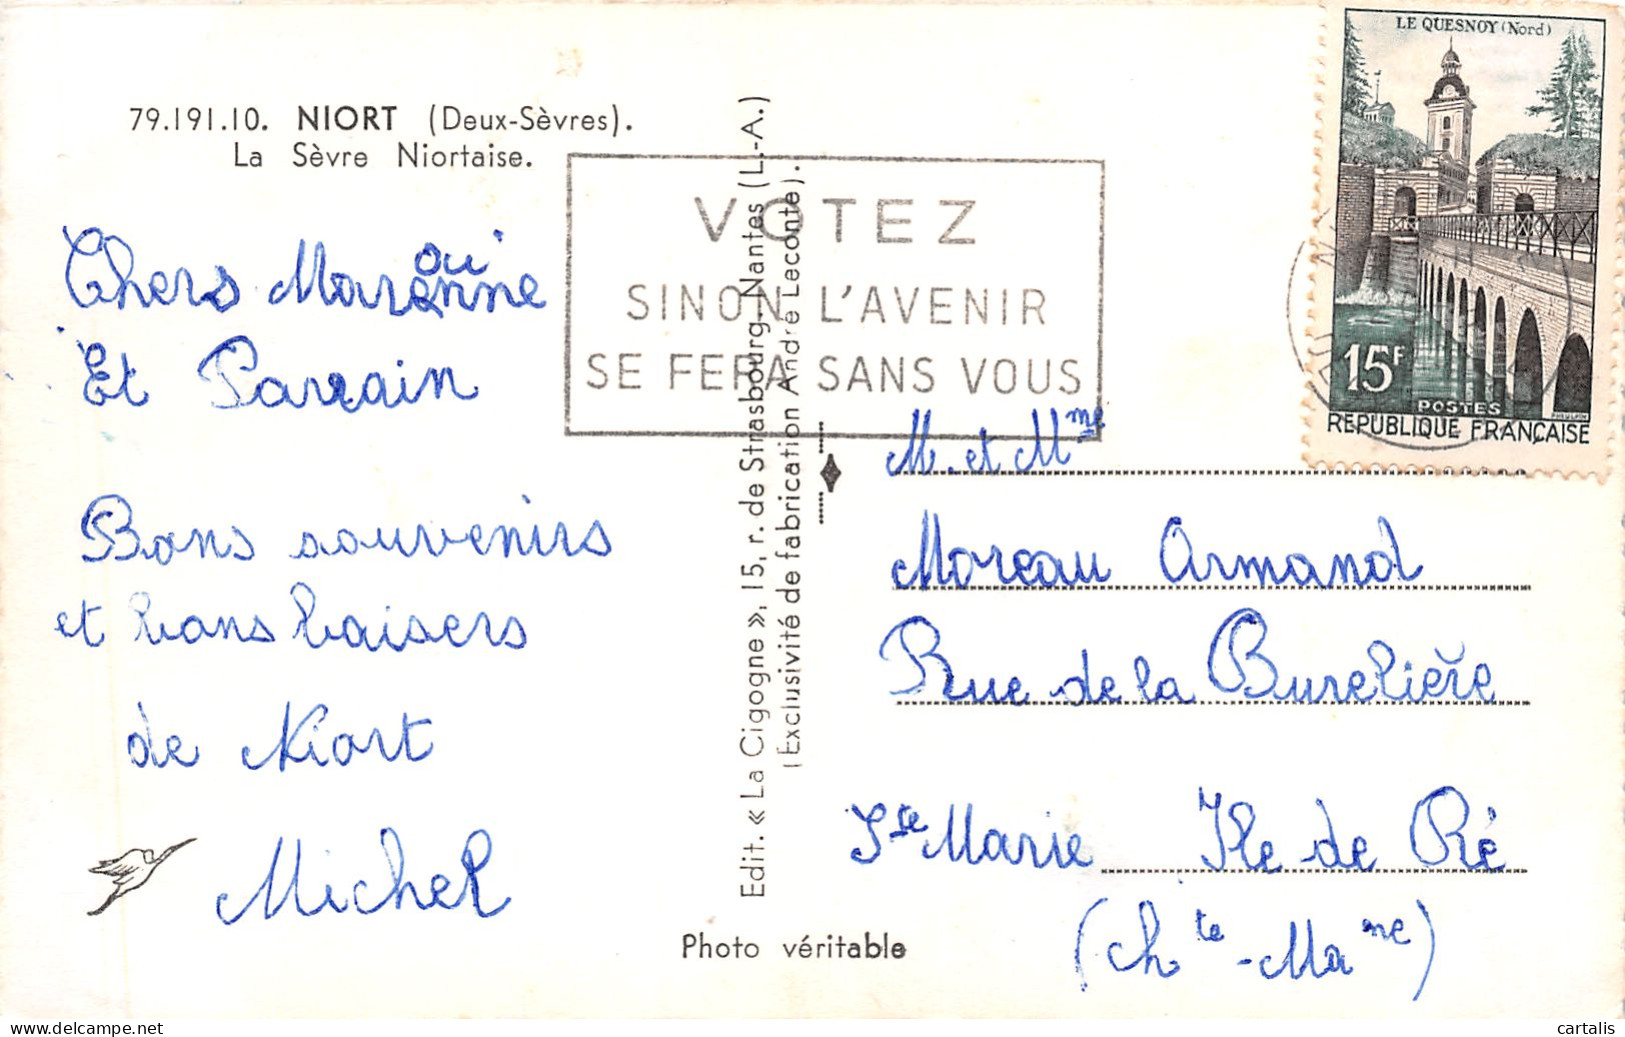 79.191.10. NIORT (Deux-Sèvres).
La Sèvre Niortaise.
Chers Marennine
oui
Et Parrain
Bons souvenirs
et bons baisers
de Niort
Michel
VOTEZ
SINON L'AVENIR
SE FERA SANS VOUS
Edit. « La Cigogne », 15, r. de Strasbourg-Nantes (L.-A.)
(Exclusivité de fabrication André Leconte).
Photo véritable
LE QUESNOY (Nord)
15F
POSTES
REPUBLIQUE FRANÇAISE
M. et Mme
Moreau Armand
Rue de la Burelière
Ste Marie Ile de Ré
(Chte-Mame)
cartalis